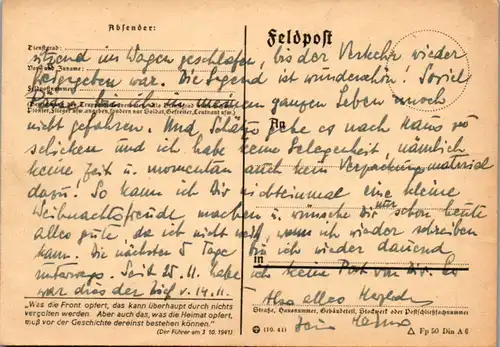 Absender:
Feldpost
Dienstgrad:
sitzend im Wagen geschlafen, bis der Verkehr wieder
Vor- und Zuname:
freigegeben war. Die Gegend ist wunderschön! Soviel
Feldpostnummer:
bin ich in meinem ganzen Leben noch
Pionier, Flieger usw.) angeben, sondern nur Soldat, Gefreiter, Leutnant usw.)
nicht gefahren. Und Schätze gäbe es nach Haus zu
An
schicken und ich habe keine Gelegenheit, nämlich
keine Zeit u. momentan auch kein Verpackungsmaterial
dazu. So kann ich Dir nichteinmal eine kleine
Weihnachtsfreude machen u. wünsche Dir nur schon heute
alles gute, da ich nicht weiß, wann ich wieder schreiben
kann. Die nächsten 5 Tage bin ich wieder dauernd
in
unterwegs. Seit 25.11. habe ich keine Post von Dir. Es
war dies der Brief v. 14.11.
Also alles Herzliche
Dein
„Was die Front opfert, das kann überhaupt durch nichts
vergolten werden. Aber auch das, was die Heimat opfert,
muß vor der Geschichte dereinst bestehen können.“
(Der Führer am 3 10. 1941)
Straße, Hausnummer, Gebäudeteil, Stockwerk oder Postschließfachnummer
(10. 41)
△ Fp 50 Din A 6